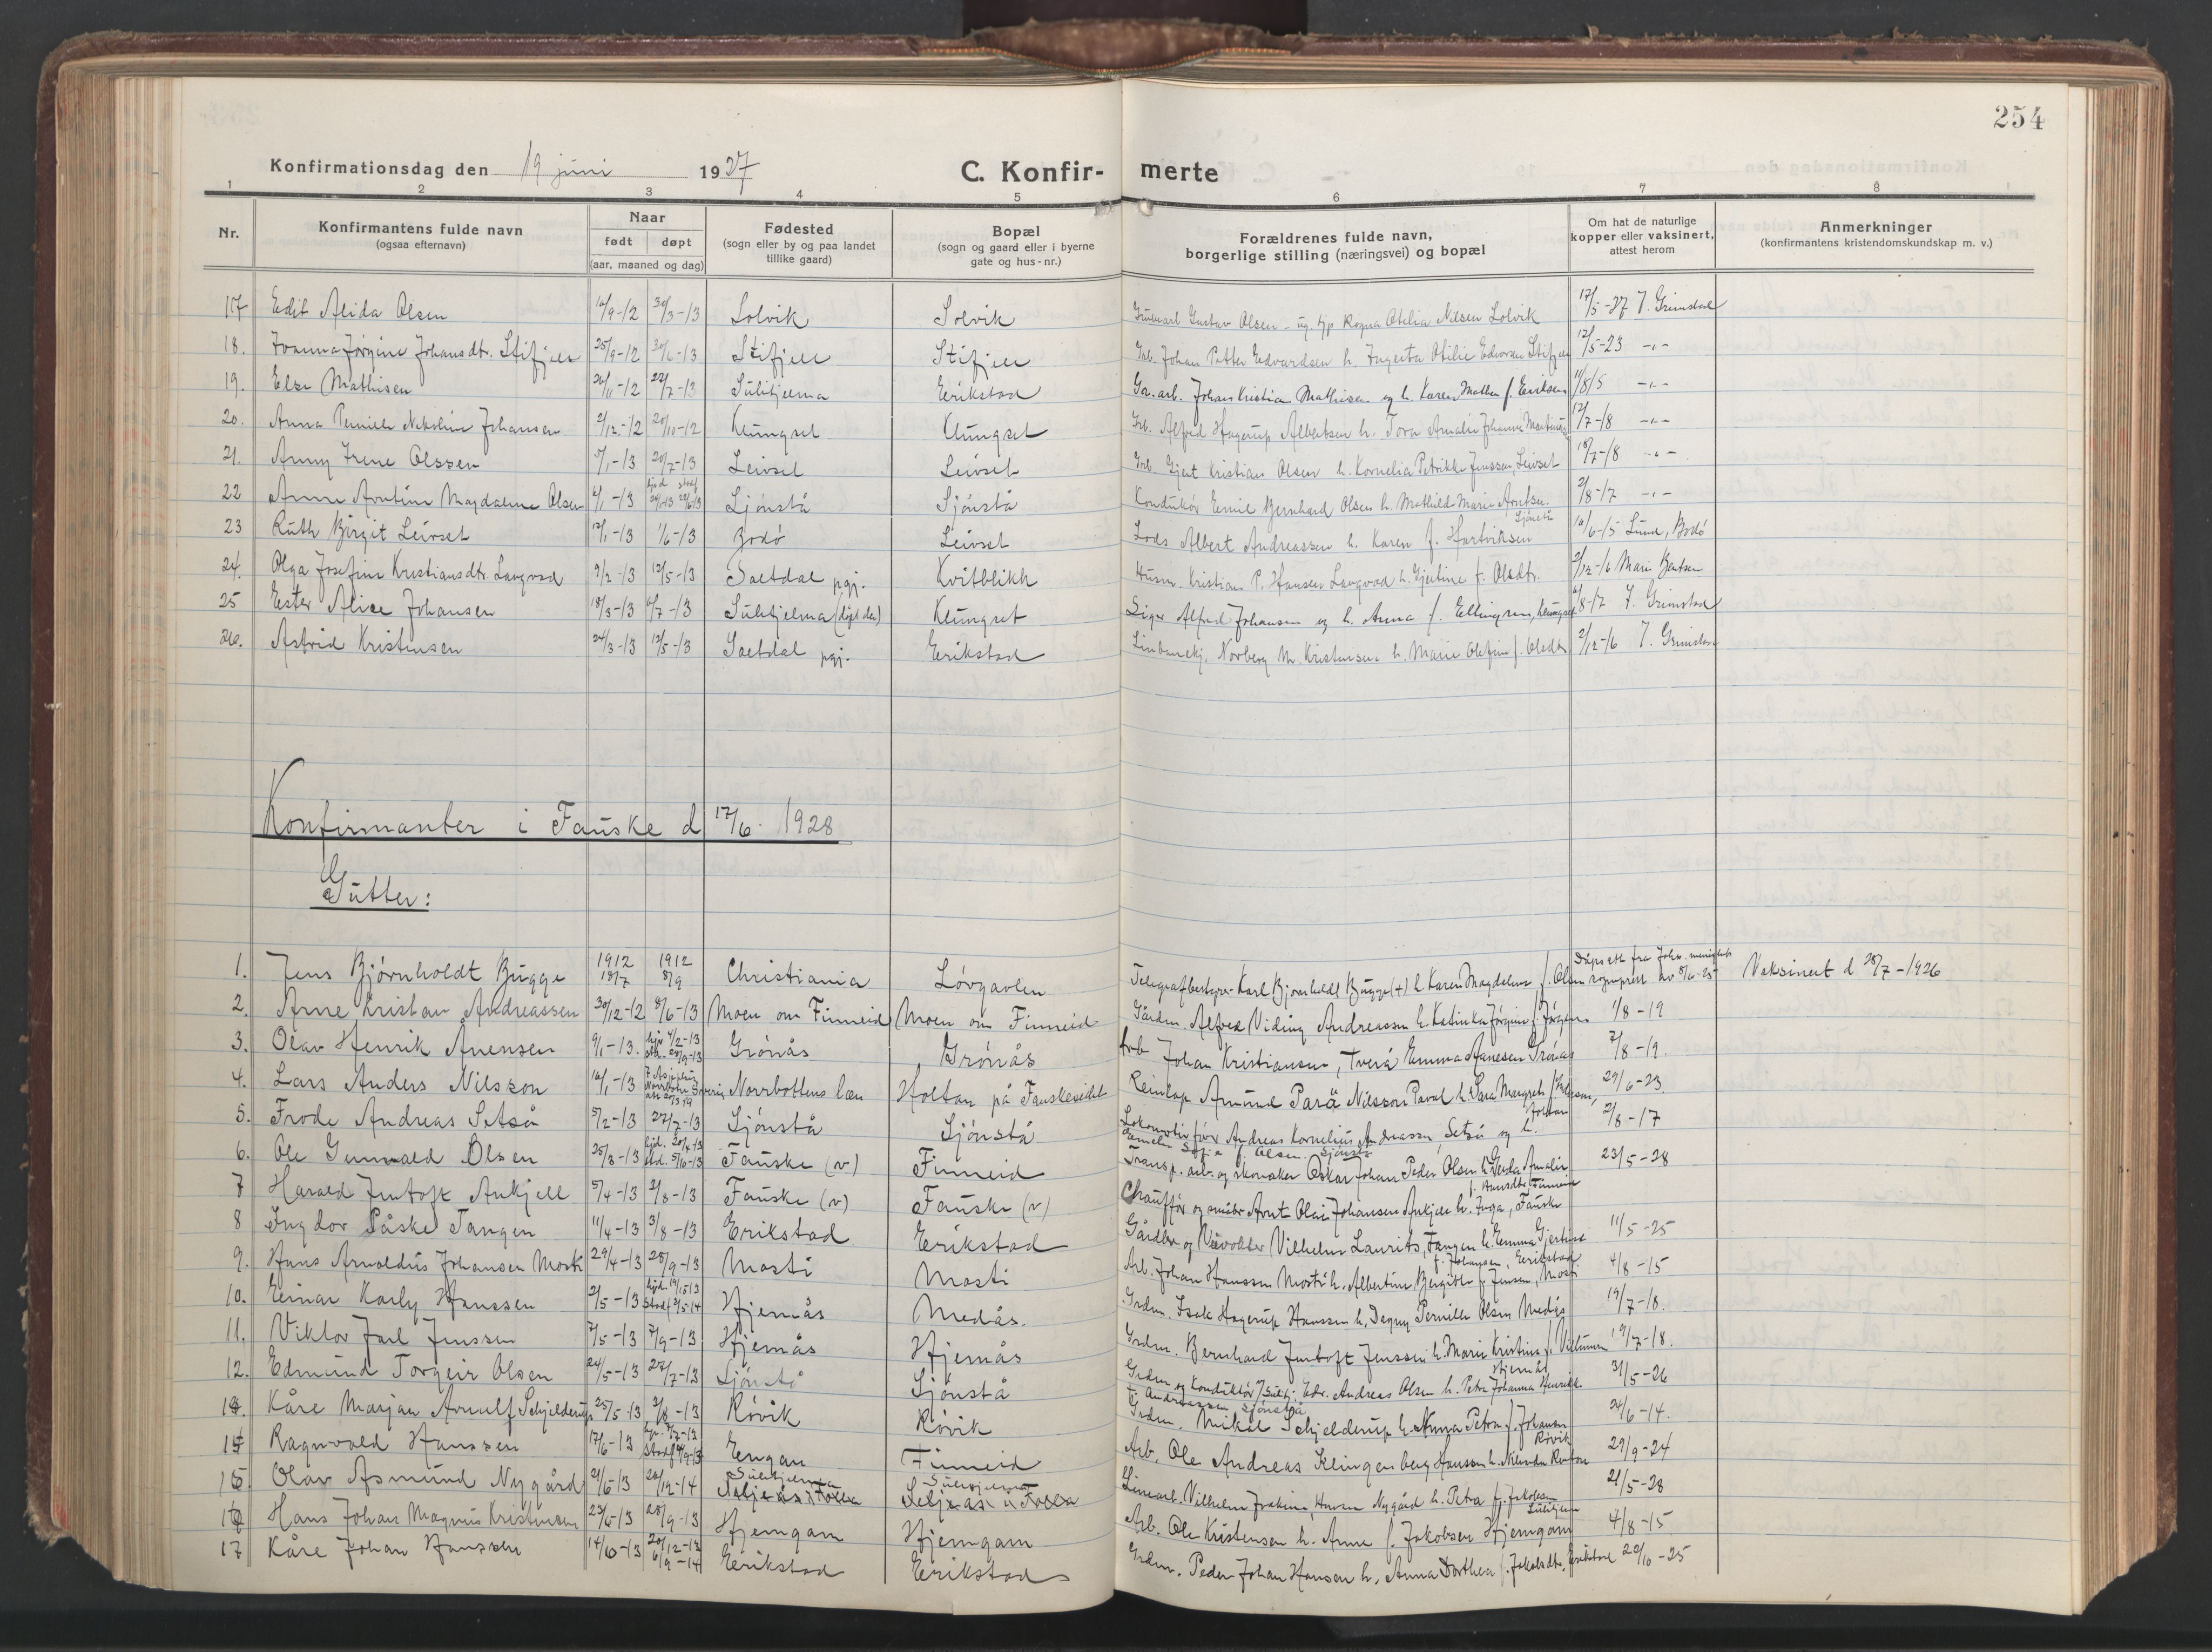 254
Konfirmationsdag den 19 juni 1927 C. Konfirmerte
1 2 3 4 5 6 7 8
Nr. Konfirmantens fulde navn (ogsaa efternavn) Naar født døpt (aar, maaned og dag) Fødested (sogn eller by og paa landet tillike gaard) Bopæl (sogn og gaard eller i byerne gate og hus-nr.) Forældrenes fulde navn, borgerlige stilling (næringsvei) og bopæl Om hat de naturlige kopper eller vaksinert, attest herom Anmerkninger (konfirmantens kristendomskundskap m. v.)
17 Edit Alida Olsen 30/3-13 Solvik Solvik Gustav Olsen Ragna Otelia Nilsen Solvik 17/5-27 J. Grimstad
18. Johansdtr. Stifjell 25/9-12 30/6-13 Stifjell Stifjell Johan Petter Edvardsen h. Otilie 12/5-23 -"-
19. Else Mathisen 22/7-13 Sulitjelma Erikstad Gr.arb. Johan Kristian Mathisen og h. Karen f. Eriksen -"-
20. Anna Pernille Johansen 2/12-12 Klungset Klungset Alfred Hagerup Albertsen h. Tora Amalie Johanne 12/7-18 -"-
21. Anny Irene Olssen 5/1-13 20/7-13 Leivset Leivset Gjert Kristian Olsen h. Kornelia Petrikke Jenssen, Leivset 18/7-18 -"-
22 Anne Magdalene Olsen 6/1-13 Sjönstå Sjönstå Konduktör Emil Bernhard Olsen h. Mathilde Marie Arntsen Sjönstå 2/8-17 -"-
23 Ruth Birgit Leivset 17/1-13 1/6-13 Bodö Leivset Lods Albert Andreassen h. Karen f. Hartviksen 16/6-15 Lund, Bodö
24. Olga Josefine Kristiansdtr. Langvad 9/2-13 12/5-13 Saltdal pgj. Kvitblikk Husm. Kristian P. Hansen Langvad h. Gjertine f. Olsdtr. 2/12-16 Marie Bentsen
25 Ester Alice Johansen 18/3-13 6/7-13 Sulitjelma (døpt der) Klungset Alfred Johansen og h. Anna f. Ellingsen, Klungset 8-17 J. Grimstad
26. Astrid Kristensen 24/3-13 12/5-13 Saltdal pgj. Erikstad Norberg M. Kristensen h. Marie Olefine f. Olsdtr. 2/12-16 J. Grimstad
Konfirmanter i Fauske d 17/6. 1928
Gutter:
1. Jens Björnholdt Bugge 1912 18/7 1912 8/9 Christiania Lövgavlen Telegrafbestyrer Karl Björnholdt Bugge (+) h. Karen Magdalene f. Olsen Vaksinert d 28/7-1926
2. Arne Kristian Andreassen 30/12-12 8/6-13 Moen om Finneid Moen om Finneid Gårdm. Alfred Viding Andreassen h. Katinka Jörgine f. Jörgens. 1/8-19
3. Olav Henrik Anensen 9/1-13. Grönås Grönås Arb Johan Kristiansen, Tverå Emma Anesen Grönås 7/8-19.
4. Lars Anders Nilsson 16/1-13 Norrbottens læn Holtan på Fauskeeidet Reinlap Amund Parä Nilsson Paval h. Sara Margreth 29/6-23.
5. Frode Andreas Setså 5/2-13 27/7-13 Sjönstå Sjönstå Lokomotivförer Andreas Kornelius Andreassen Setså og h. Sofie f. Olsen, Sjönstå 2/8-17
6. Ole Gunvald Olsen 25/3-13 hjd. 20/4-13 std. 5/10-13 Fauske (v) Finneid Transp. arb. og skomaker Oskar Johan Peder Olsen h. Gerda Amalie f. Hansdtr. Finneid 23/5-28
7 Harald Jentoft Ankjell 5/4-13 2/8-13 Fauske (v) Fauske (v) Chaufför og snider Arnt Olai Johansen Ankjell h. Inga, Fauske
8 Ingdor Påske Tangen 11/4-13 3/8-13 Erikstad Erikstad Gårdbr. og Vilhelm Laurits Tangen h. Emma Gjertine f. Johansen, Erikstad 11/5-25
9. Hans Arnoldus Johansen Mosti 29/4-13 28/9-13 Mosti Mosti Arb. Johan Hanssen Mosti h. Albertine Bergitte f. Jensen, Mosti 4/8-15
10. Einar Karly Hanssen 2/5-13 Hjemås Medås. Grdm. Isak Hagerup Hanssen h. Dagny Pernille Olsen Medås 19/7-18.
11. Viktor Jarl Jenssen 7/5-13 7/9-13 Hjemås Hjemås Grdm. Bernhard Jentoft Jenssen h. Marie Kristine f. Villumsen Hjemås 19/7-18.
12. Edmund Torgeir Olsen 24/5-13 27/7-13 Sjönstå Sjönstå Grdm. og Konduktör Edv. Andreas Olsen h. Petra Johanna Henrikke f. Andreassen Sjönstå 31/5-26
Kåre Marjan Arnulf Schjelderup 25/5-13 2/8-13 Rövik Rövik Grdm. Mikal Schjelderup h. Anna Petra f. Johansen Rövik 24/6-14.
Ragnvald Hanssen 17/6-13 Engan Finneid Arb. Ole Andreas Klingenberg Hanssen h. 29/9-24
Olav Asmund Nygård 21/6-13 26/12-14 Sulitjelma Sulitjelma Vilhelm Joakim Hansen Nygård h. Petra f. Jakobsen Sulitjelma 21/5-28
Hans Johan Magnus Kristensen 23/6-13 28/9-13 Hjemgam Hjemgam Arb. Ole Kristensen h. Anne f. Jakobsen Hjemgam 4/8-15
17 Kåre Johan Hanssen 14/10-13 20/12-13 6/9-14 Erikstad Erikstad Grdm. Peder Johan Hansen h. Anna Dorthea f. Jakobsdtr. Erikstad 20/10-25